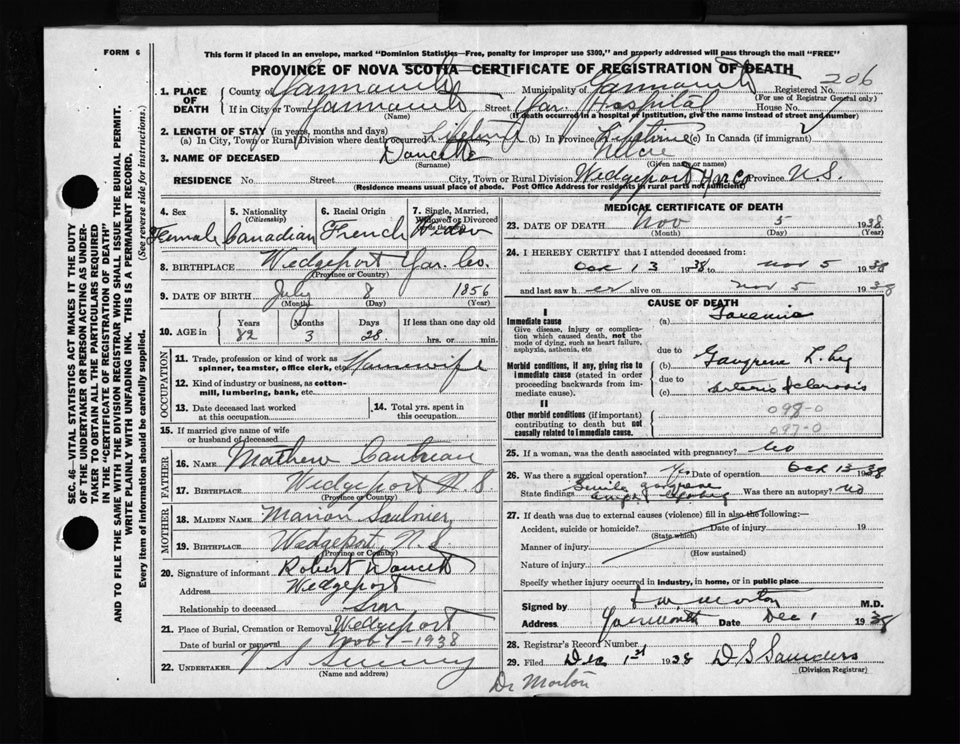 FORM 6
This form if placed in an envelope, marked "Dominion Statistics—Free, penalty for improper use $300," and properly addressed will pass through the mail "FREE"
PROVINCE OF NOVA SCOTIA CERTIFICATE OF REGISTRATION OF DEATH
206
1. PLACE OF DEATH
County of Yarmouth Municipality of Yarmouth Registered No.
(For use of Registrar General only)
If in City or Town Yarmouth Street Yar. Hospital House No.
(Name) (If death occurred in a hospital or institution, give the name instead of street and number)
2. LENGTH OF STAY (in years, months and days)
(a) In City, Town or Rural Division where death occurred Lifetime (b) In Province Lifetime (c) In Canada (if immigrant)
3. NAME OF DECEASED Doucette
(Surname) (Given name or names)
RESIDENCE No. Street City, Town or Rural Division Wedgeport Yar Co Province N.S.
(Residence means usual place of abode. Post Office Address for residents in rural parts not sufficient)
4. Sex Female
5. Nationality (Citizenship) Canadian
6. Racial Origin French
7. Single, Married, Widowed or Divorced Widow
8. BIRTHPLACE Wedgeport Yar. Co.
(Province or Country)
9. DATE OF BIRTH July 8 1856
(Month) (Day) (Year)
10. AGE in Years Months Days If less than one day old
82 3 28 hrs. or min.
OCCUPATION
11. Trade, profession or kind of work as spinner, teamster, office clerk, etc. Housewife
12. Kind of industry or business, as cotton-mill, lumbering, bank, etc.
13. Date deceased last worked at this occupation
14. Total yrs. spent in this occupation
15. If married give name of wife or husband of deceased
FATHER
16. Name Mathew
17. Birthplace Wedgeport N.S.
(Province or Country)
MOTHER
18. Maiden Name Marion Saulnier
19. Birthplace Wedgeport, N.S.
(Province or Country)
20. Signature of informant Robert Doucett
Address Wedgeport
Relationship to deceased Son
21. Place of Burial, Cremation or Removal Wedgeport
Date of burial or removal Nov 7-1938
22. Undertaker
(Name and address)
MEDICAL CERTIFICATE OF DEATH
23. DATE OF DEATH Nov 5 1938
(Month) (Day) (Year)
24. I HEREBY CERTIFY that I attended deceased from:
Oct 13 1938 to Nov 5 1938
and last saw her alive on Nov 5 1938
CAUSE OF DEATH
I
Immediate cause (a) Toxemia
Give disease, injury or complication which caused death, not the mode of dying, such as heart failure, asphyxia, asthenia, etc
due to
(b) Gangrene L. Leg
Morbid conditions, if any, giving rise to immediate cause (stated in order proceeding backwards from immediate cause).
due to
(c) Arterio sclerosis
II
Other morbid conditions (if important) contributing to death but not causally related to immediate cause.
098-0
097-0
25. If a woman, was the death associated with pregnancy? No
26. Was there a surgical operation? Yes Date of operation Oct 13 1938
State findings Senile gangrene Was there an autopsy? No
27. If death was due to external causes (violence) fill in also the following:—
Accident, suicide or homicide? Date of injury 19
(State which)
Manner of injury
(How sustained)
Nature of injury
Specify whether injury occurred in industry, in home, or in public place
Signed by Morton M.D.
Address Yarmouth Date Dec 1 1938
28. Registrar's Record Number
29. Filed Dec 1st 1938 D. S. Saunders
(Division Registrar)
Dr Morton
SEC. 46—VITAL STATISTICS ACT MAKES IT THE DUTY
OF THE UNDERTAKER OR PERSON ACTING AS UNDER-
TAKER TO OBTAIN ALL THE PARTICULARS REQUIRED
IN THE "CERTIFICATE OF REGISTRATION OF DEATH"
AND TO FILE THE SAME WITH THE DIVISION REGISTRAR WHO SHALL ISSUE THE BURIAL PERMIT.
WRITE PLAINLY WITH UNFADING INK. THIS IS A PERMANENT RECORD.
Every item of information should be carefully supplied. (See reverse side for instructions.)